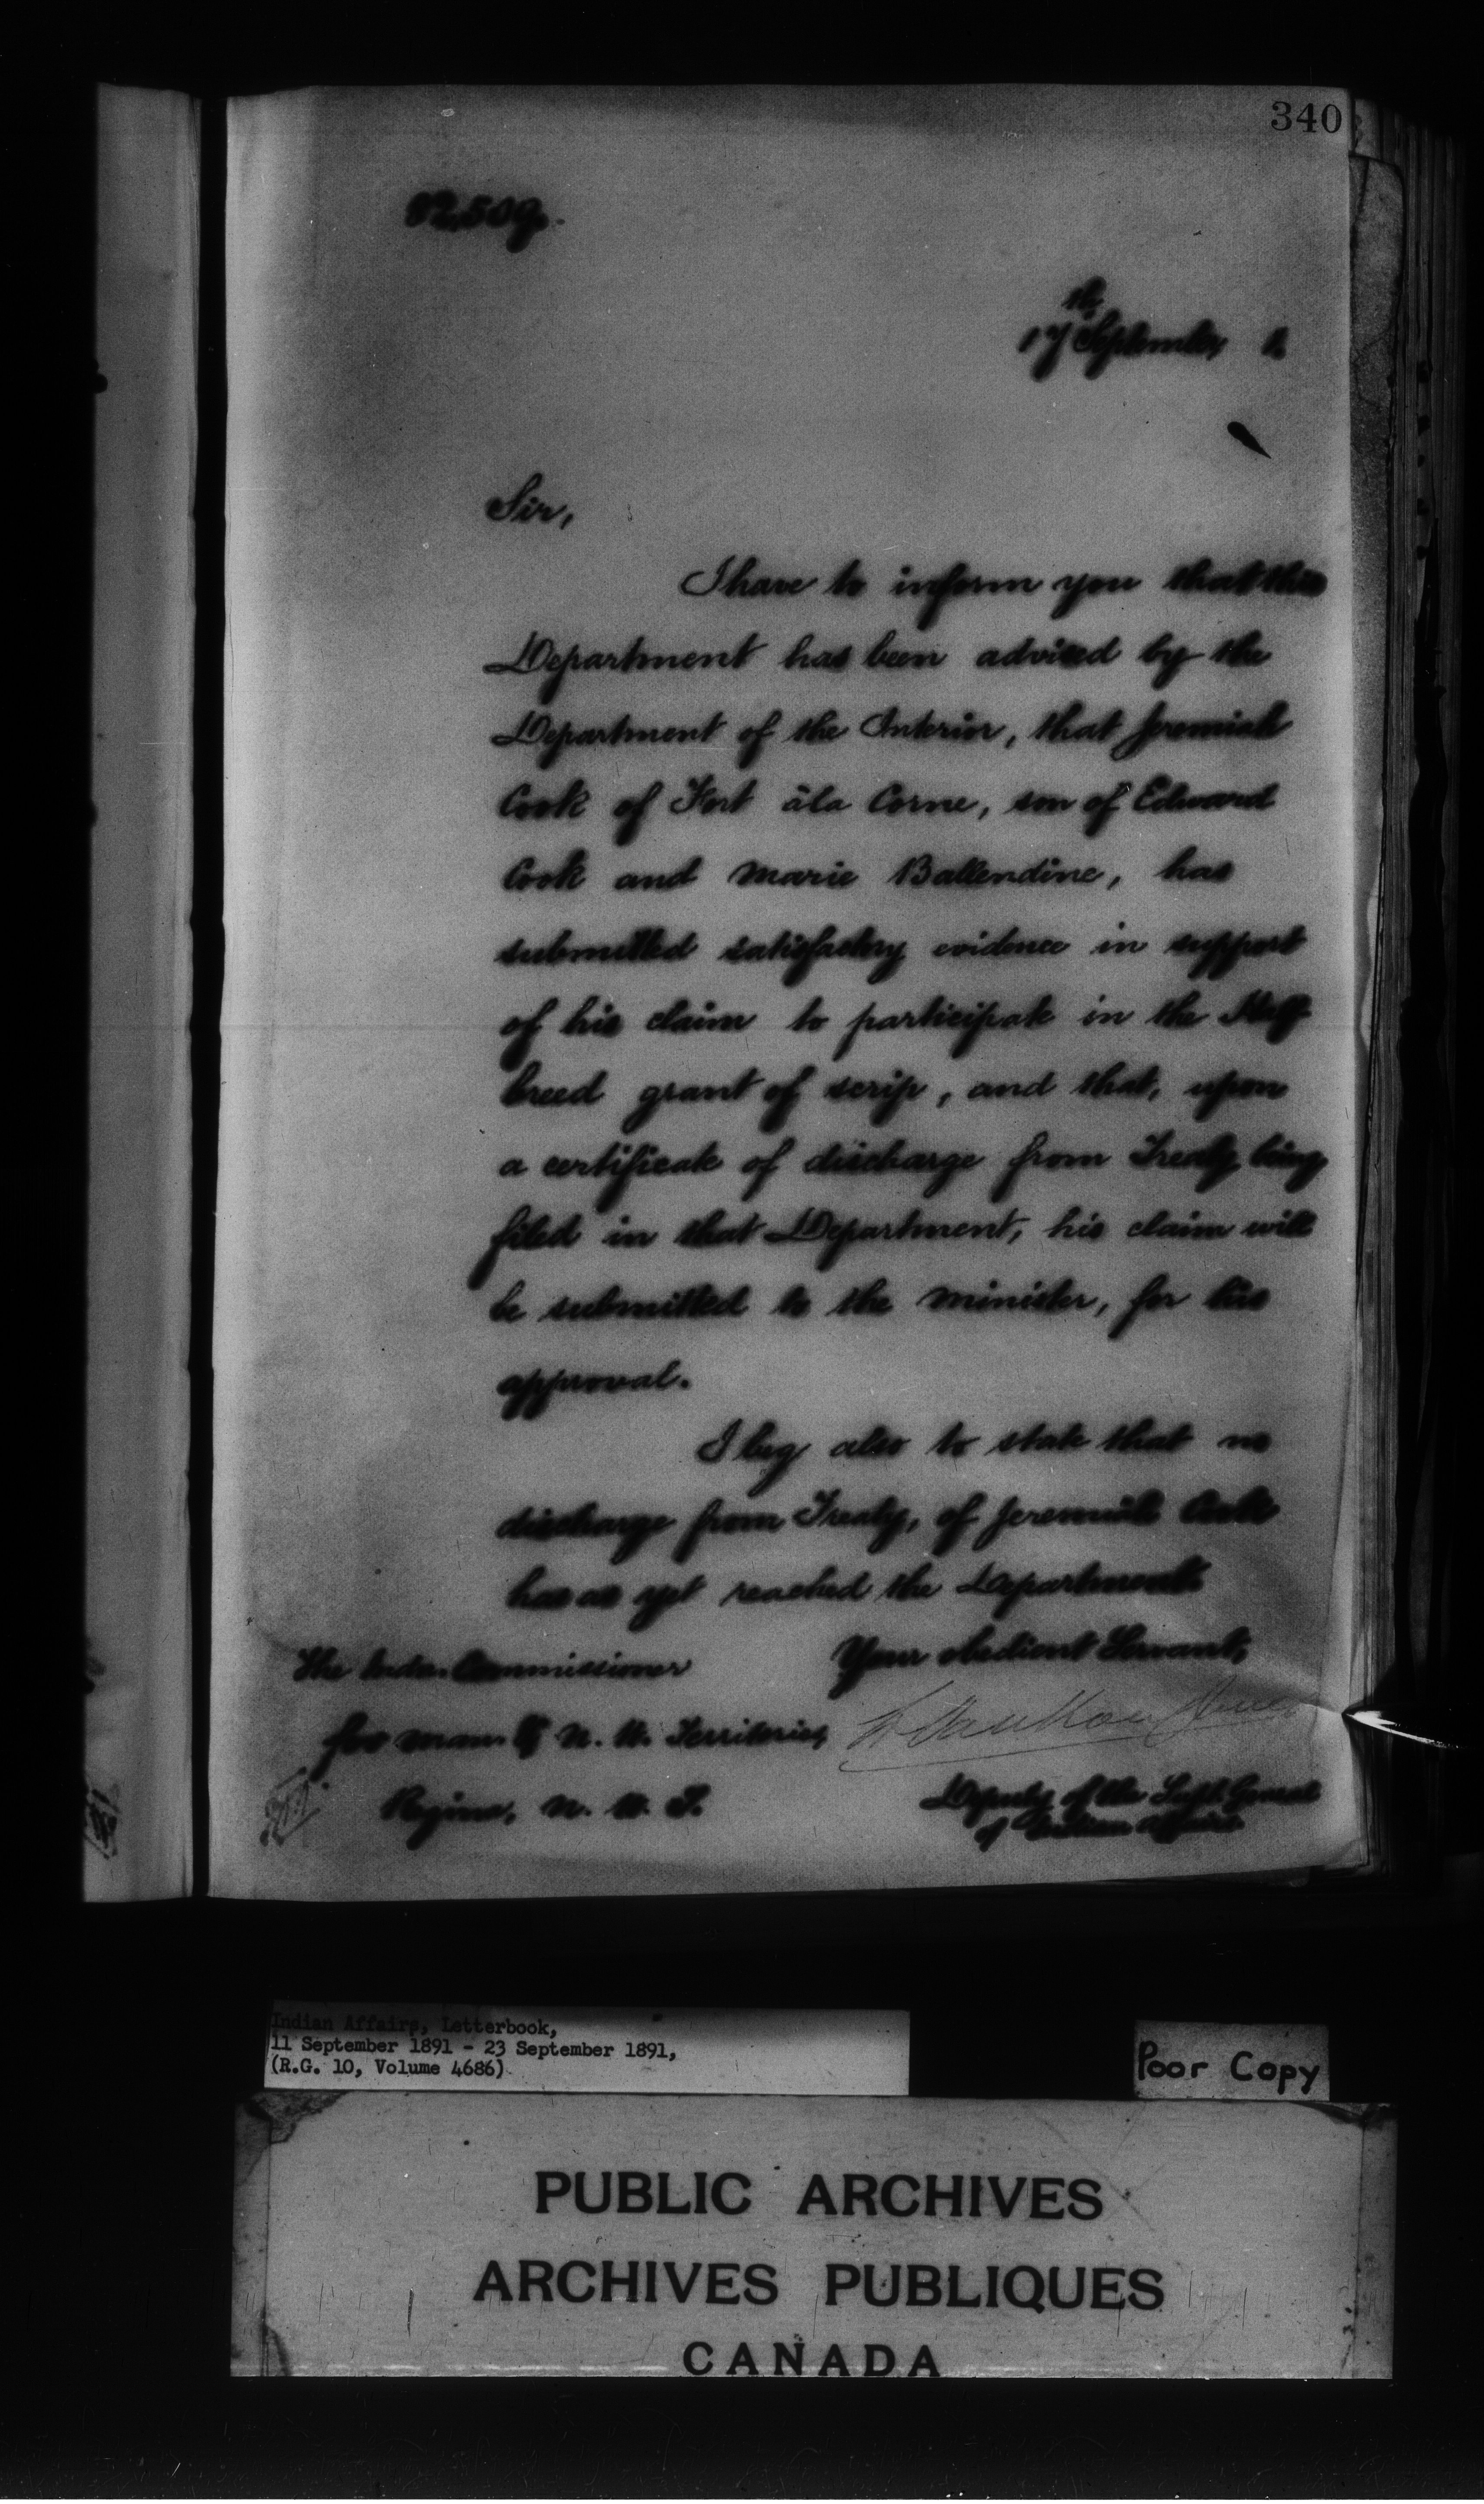 340
82,509
th
17 September 1.
Sir,
I have to inform you that this
Department has been advised by the
Department of the Interior, that Jeremiah
Cook of Fort à la Corne, son of Edward
Cook and Marie Ballendine, has
submitted satisfactory evidence in support
of his claim to participate in the Half
breed grant of scrip, and that, upon
a certificate of discharge from Treaty being
filed in that Department, his claim will
be submitted to the Minister, for his
approval.
I beg also to state that no
discharge from Treaty, of Jeremiah Cook
has as yet reached the Department.
Your obedient Servant,
The Indn. Commissioner
for Man. & N. W. Territories,
Regina, N. W. T.
L. Vankoughnet
Deputy of the Supt. General
of Indian Affairs
Indian Affairs, Letterbook,
11 September 1891 - 23 September 1891,
(R.G. 10, Volume 4686)
Poor Copy
PUBLIC ARCHIVES
ARCHIVES PUBLIQUES
CANADA